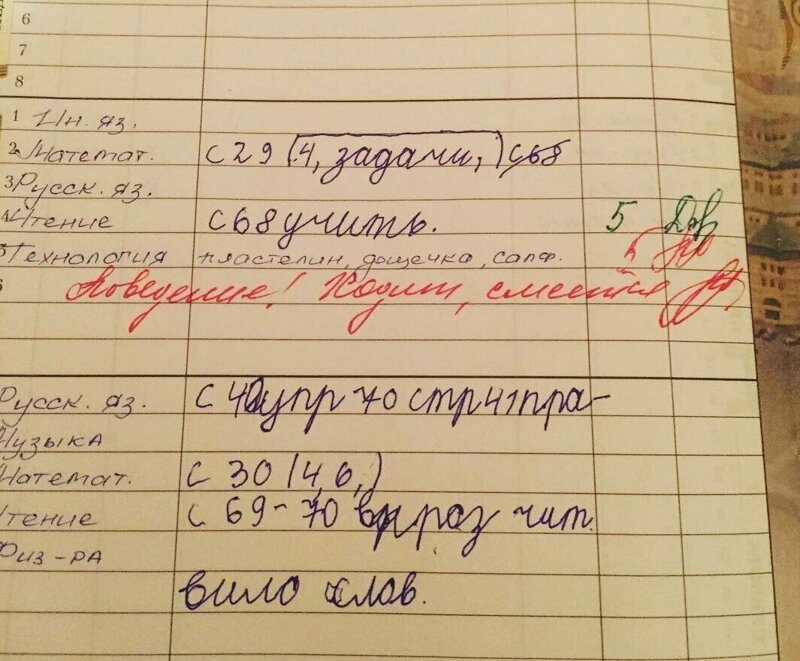 6
7
8
1 Ин. яз.
2 Математ. с 29 (4, задачи,) с68
3 Русск. яз.
4 Чтение с 68 учить. 5
5 Технология пластелин, дощечка, салф. 5
6 Поведение! Ходит, смеется
Русск. яз. с 40 упр 70 стр 41 пра-
Музыка
Математ. с 30 (4, 6,)
Чтение с 69-70 выраз чит.
Физ-ра
вило слов.